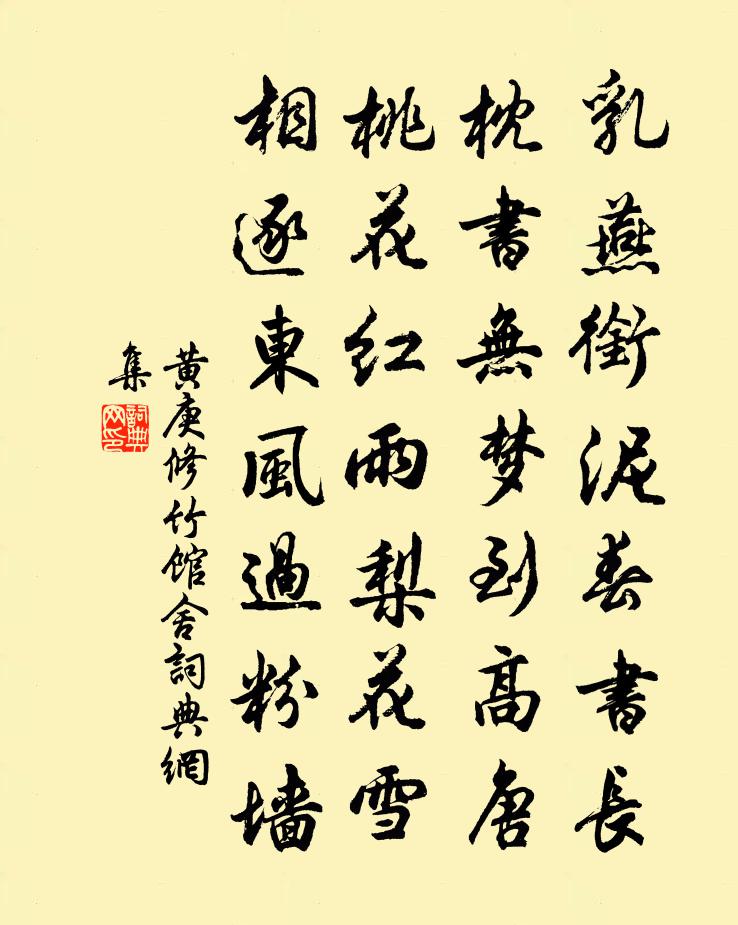 乳燕銜泥春書長
枕書無梦到高唐
桃花红雨梨花雪
相逐東風過粉墙
黄庚修竹馆舍詞典網
集
詞典网印